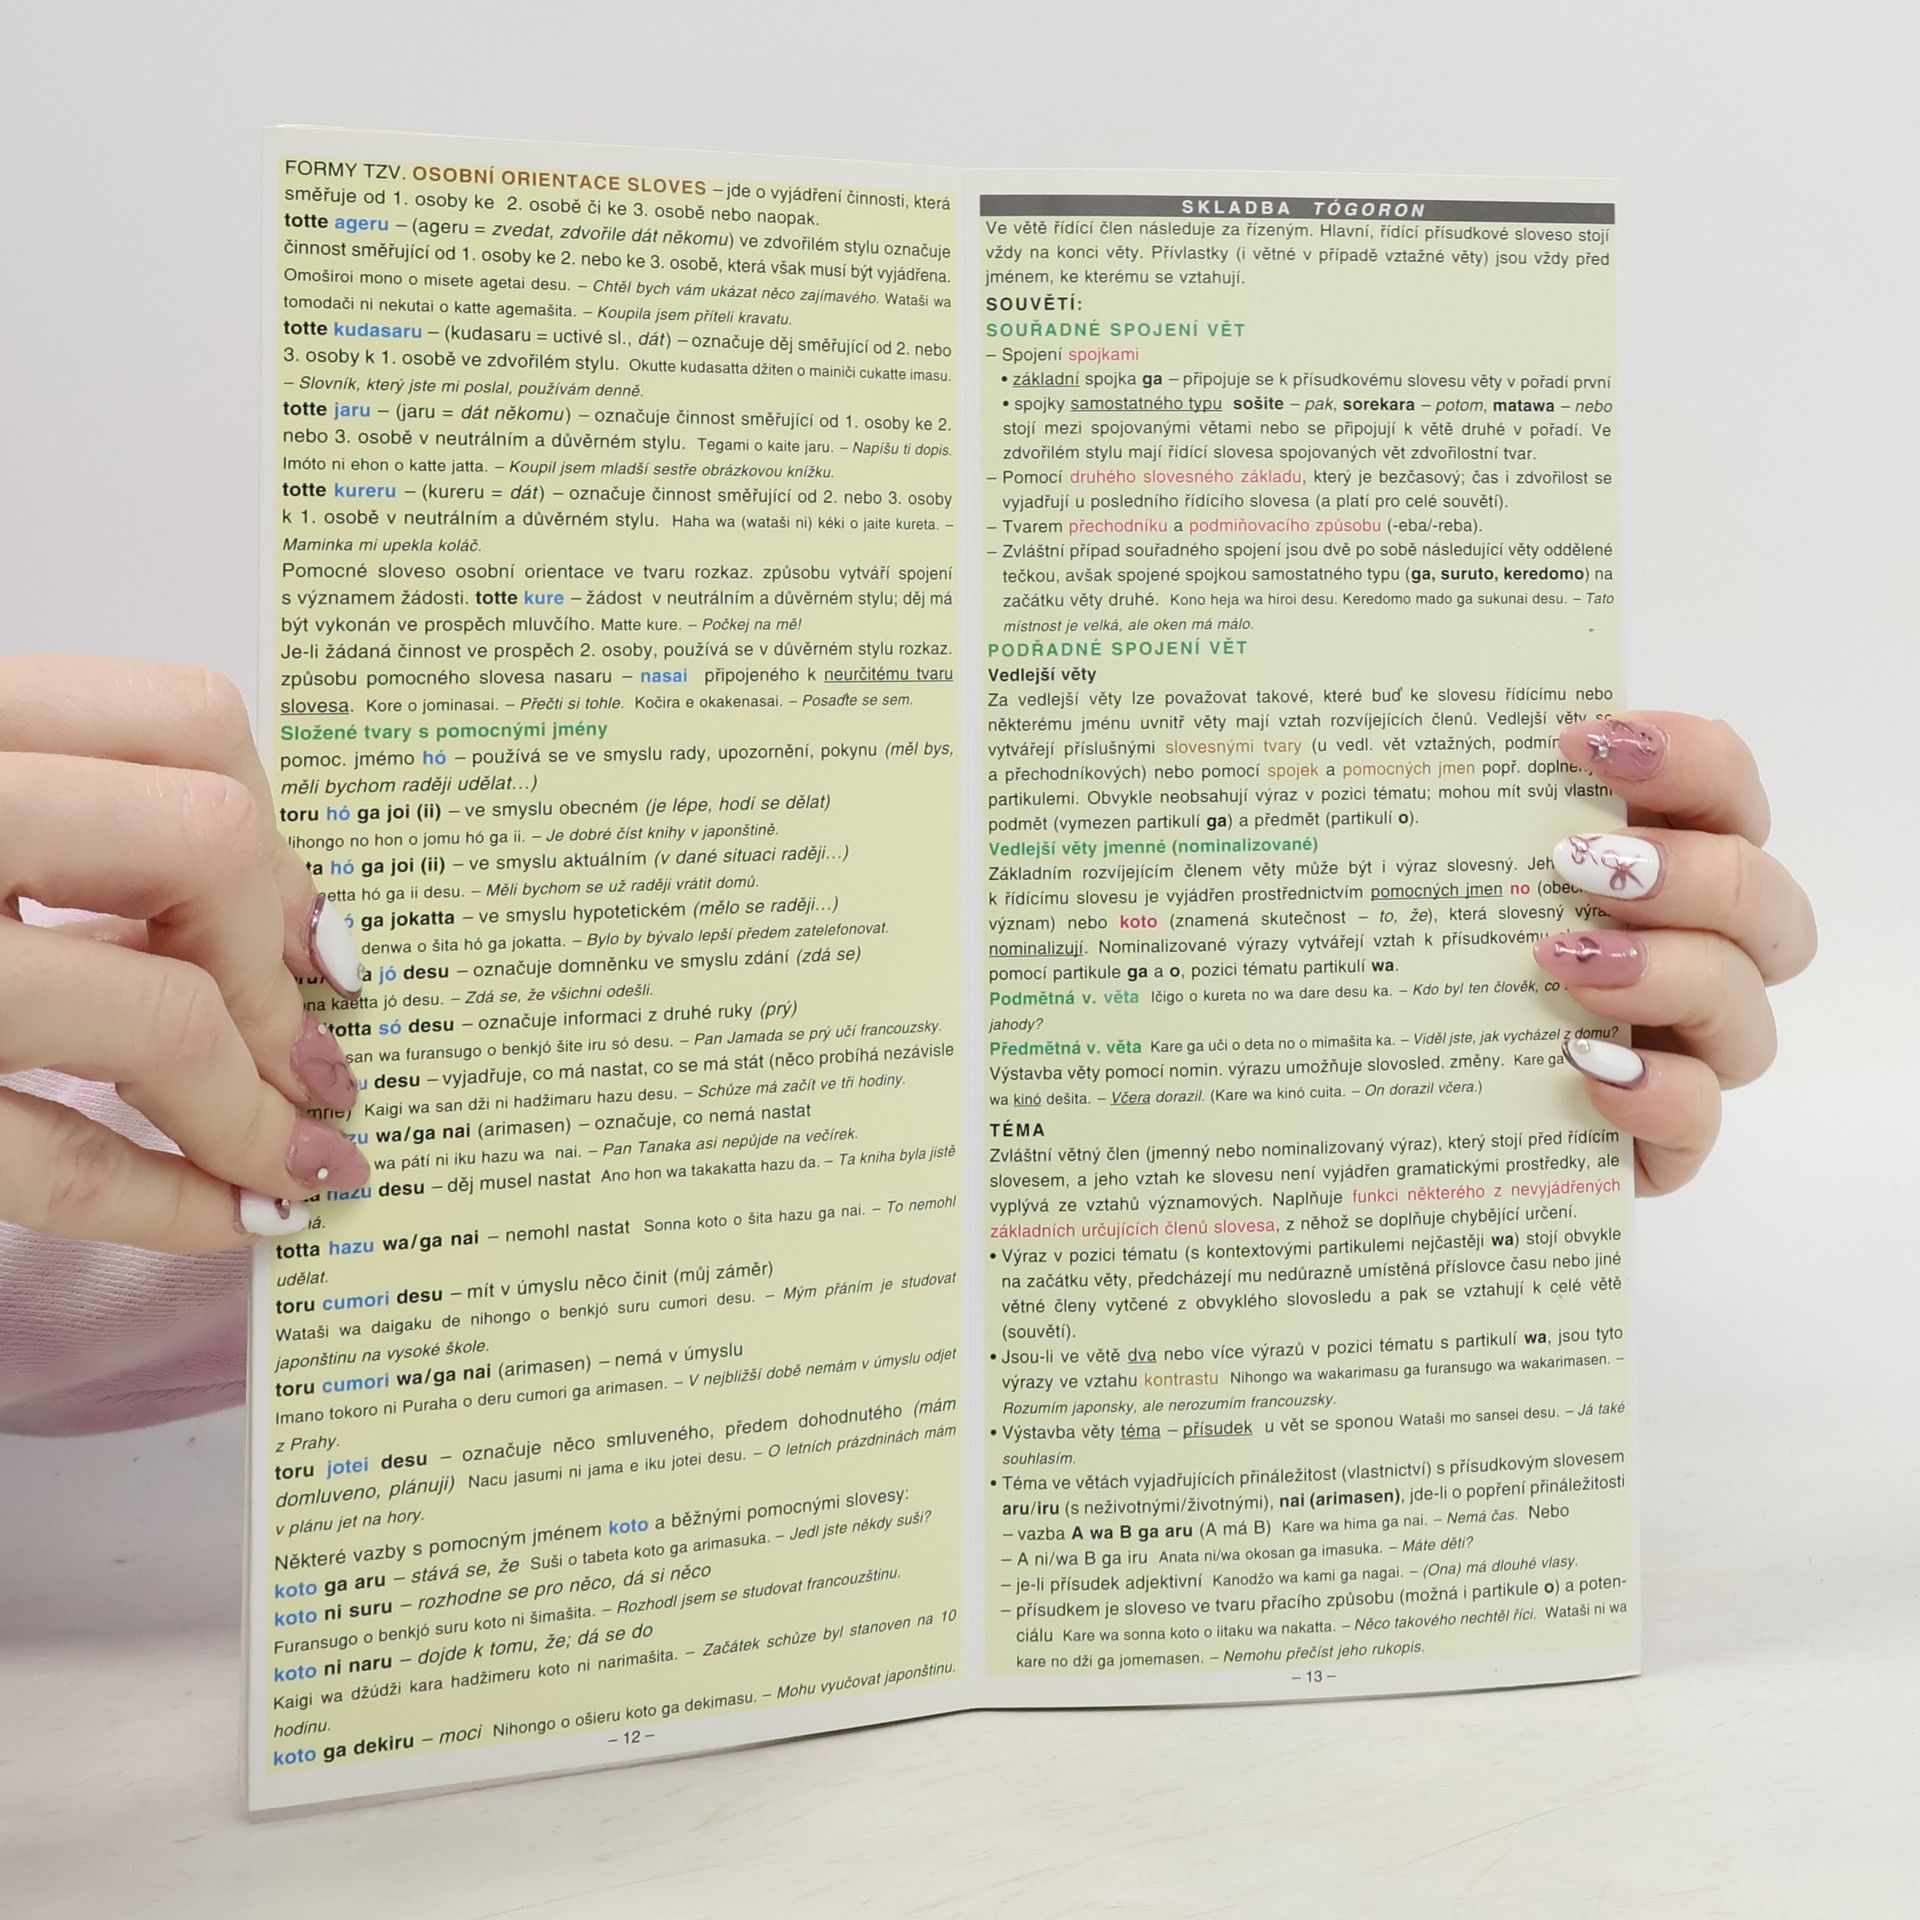 FORMY TZV. OSOBNÍ ORIENTACE SLOVES – jde o vyjádření činnosti, která
směřuje od 1. osoby ke 2. osobě či ke 3. osobě nebo naopak.
totte ageru – (ageru = zvedat, zdvořile dát někomu) ve zdvořilém stylu označuje
činnost směřující od 1. osoby ke 2. nebo ke 3. osobě, která však musí být vyjádřena.
Omoširoi mono o misete agetai desu. – Chtěl bych vám ukázat něco zajímavého. Wataši wa
tomodači ni nekutai o katte agemašita. – Koupila jsem příteli kravatu.
totte kudasaru – (kudasaru = uctivé sl., dát) – označuje děj směřující od 2. nebo
3. osoby k 1. osobě ve zdvořilém stylu. Okutte kudasatta džiten o mainiči cukatte imasu.
– Slovník, který jste mi poslal, používám denně.
totte jaru – (jaru = dát někomu) – označuje činnost směřující od 1. osoby ke 2.
nebo 3. osobě v neutrálním a důvěrném stylu. Tegami o kaite jaru. – Napíšu ti dopis.
Imóto ni ehon o katte jatta. – Koupil jsem mladší sestře obrázkovou knížku.
totte kureru – (kureru = dát) – označuje činnost směřující od 2. nebo 3. osoby
k 1. osobě v neutrálním a důvěrném stylu. Haha wa (wataši ni) kéki o jaite kureta. –
Maminka mi upekla koláč.
Pomocné sloveso osobní orientace ve tvaru rozkaz. způsobu vytváří spojení
s významem žádosti. totte kure – žádost v neutrálním a důvěrném stylu; děj má
být vykonán ve prospěch mluvčího. Matte kure. – Počkej na mě!
Je-li žádaná činnost ve prospěch 2. osoby, používá se v důvěrném stylu rozkaz.
způsobu pomocného slovesa nasaru – nasai připojeného k neurčitému tvaru
slovesa. Kore o jominasai. – Přečti si tohle. Kočira e okakenasai. – Posaďte se sem.
Složené tvary s pomocnými jmény
pomoc. jmémo hó – používá se ve smyslu rady, upozornění, pokynu (měl bys,
měli bychom raději udělat...)
toru hó ga joi (ii) – ve smyslu obecném (je lépe, hodí se dělat)
no hon o jomu hó ga ii. – Je dobré číst knihy v japonštině.
hó ga joi (ii) – ve smyslu aktuálním (v dané situaci raději...)
hó ga ii desu. – Měli bychom se už raději vrátit domů.
ga jokatta – ve smyslu hypotetickém (mělo se raději...)
denwa o šita hó ga jokatta. – Bylo by bývalo lepší předem zatelefonovat.
jó desu – označuje domněnku ve smyslu zdání (zdá se)
kaetta jó desu. – Zdá se, že všichni odešli.
só desu – označuje informaci z druhé ruky (prý)
san wa furansugo o benkjó šite iru só desu. – Pan Jamada se prý učí francouzsky.
desu – vyjadřuje, co má nastat, co se má stát (něco probíhá nezávisle
Kaigi wa san dži ni hadžimaru hazu desu. – Schůze má začít ve tři hodiny.
wa/ga nai (arimasen) – označuje, co nemá nastat
wa pátí ni iku hazu wa nai. – Pan Tanaka asi nepůjde na večírek.
hazu desu – děj musel nastat Ano hon wa takakatta hazu da. – Ta kniha byla jistě
totta hazu wa/ga nai – nemohl nastat Sonna koto o šita hazu ga nai. – To nemohl
udělat.
toru cumori desu – mít v úmyslu něco činit (můj záměr)
Wataši wa daigaku de nihongo o benkjó suru cumori desu. – Mým přáním je studovat
japonštinu na vysoké škole.
toru cumori wa/ga nai (arimasen) – nemá v úmyslu
Imano tokoro ni Puraha o deru cumori ga arimasen. – V nejbližší době nemám v úmyslu odjet
z Prahy.
toru jotei desu – označuje něco smluveného, předem dohodnutého (mám
domluveno, plánuji) Nacu jasumi ni jama e iku jotei desu. – O letních prázdninách mám
v plánu jet na hory.
Některé vazby s pomocným jménem koto a běžnými pomocnými slovesy:
koto ga aru – stává se, že Suši o tabeta koto ga arimasuka. – Jedl jste někdy suši?
koto ni suru – rozhodne se pro něco, dá si něco
Furansugo o benkjó suru koto ni šimašita. – Rozhodl jsem se studovat francouzštinu.
koto ni naru – dojde k tomu, že; dá se do
Kaigi wa džúdži kara hadžimeru koto ni narimašita. – Začátek schůze byl stanoven na 10
hodinu.
koto ga dekiru – moci Nihongo o ošieru koto ga dekimasu. – Mohu vyučovat japonštinu.
– 12 –
SKLADBA TÓGORON
Ve větě řídící člen následuje za řízeným. Hlavní, řídící přísudkové sloveso stojí
vždy na konci věty. Přívlastky (i větné v případě vztažné věty) jsou vždy před
jménem, ke kterému se vztahují.
SOUVĚTÍ:
SOUŘADNÉ SPOJENÍ VĚT
– Spojení spojkami
• základní spojka ga – připojuje se k přísudkovému slovesu věty v pořadí první
• spojky samostatného typu sošite – pak, sorekara – potom, matawa – nebo
stojí mezi spojovanými větami nebo se připojují k větě druhé v pořadí. Ve
zdvořilém stylu mají řídící slovesa spojovaných vět zdvořilostní tvar.
– Pomocí druhého slovesného základu, který je bezčasový; čas i zdvořilost se
vyjadřují u posledního řídícího slovesa (a platí pro celé souvětí).
– Tvarem přechodníku a podmiňovacího způsobu (-eba/-reba).
– Zvláštní případ souřadného spojení jsou dvě po sobě následující věty oddělené
tečkou, avšak spojené spojkou samostatného typu (ga, suruto, keredomo) na
začátku věty druhé. Kono heja wa hiroi desu. Keredomo mado ga sukunai desu. – Tato
místnost je velká, ale oken má málo.
PODŘADNÉ SPOJENÍ VĚT
Vedlejší věty
Za vedlejší věty lze považovat takové, které buď ke slovesu řídícímu nebo
některému jménu uvnitř věty mají vztah rozvíjejících členů. Vedlejší věty se
vytvářejí příslušnými slovesnými tvary (u vedl. vět vztažných,
a přechodníkových) nebo pomocí spojek a pomocných jmen popř.
partikulemi. Obvykle neobsahují výraz v pozici tématu; mohou mít svůj vlastní
podmět (vymezen partikulí ga) a předmět (partikulí o).
Vedlejší věty jmenné (nominalizované)
Základním rozvíjejícím členem věty může být i výraz slovesný.
k řídícímu slovesu je vyjádřen prostřednictvím pomocných jmen no
význam) nebo koto (znamená skutečnost – to, že), která slovesný
nominalizují. Nominalizované výrazy vytvářejí vztah k přísudkovému
pomocí partikule ga a o, pozici tématu partikulí wa.
Podmětná v. věta Ičigo o kureta no wa dare desu ka. – Kdo byl ten člověk, co
jahody?
Předmětná v. věta Kare ga uči o deta no o mimašita ka. – Viděl jste, jak vycházel z domu?
Výstavba věty pomocí nomin. výrazu umožňuje slovosled. změny. Kare ga
wa kinó dešita. – Včera dorazil. (Kare wa kinó cuita. – On dorazil včera.)
TÉMA
Zvláštní větný člen (jmenný nebo nominalizovaný výraz), který stojí před řídícím
slovesem, a jeho vztah ke slovesu není vyjádřen gramatickými prostředky, ale
vyplývá ze vztahů významových. Naplňuje funkci některého z nevyjádřených
základních určujících členů slovesa, z něhož se doplňuje chybějící určení.
• Výraz v pozici tématu (s kontextovými partikulemi nejčastěji wa) stojí obvykle
na začátku věty, předcházejí mu nedůrazně umístěná příslovce času nebo jiné
větné členy vytčené z obvyklého slovosledu a pak se vztahují k celé větě
(souvětí).
• Jsou-li ve větě dva nebo více výrazů v pozici tématu s partikulí wa, jsou tyto
výrazy ve vztahu kontrastu Nihongo wa wakarimasu ga furansugo wa wakarimasen. –
Rozumím japonsky, ale nerozumím francouzsky.
• Výstavba věty téma – přísudek u vět se sponou Wataši mo sansei desu. – Já také
souhlasím.
• Téma ve větách vyjadřujících přináležitost (vlastnictví) s přísudkovým slovesem
aru/iru (s neživotnými/životnými), nai (arimasen), jde-li o popření přináležitosti
– vazba A wa B ga aru (A má B) Kare wa hima ga nai. – Nemá čas. Nebo
– A ni/wa B ga iru Anata ni/wa okosan ga imasuka. – Máte děti?
– je-li přísudek adjektivní Kanodžo wa kami ga nagai. – (Ona) má dlouhé vlasy.
– přísudkem je sloveso ve tvaru přacího způsobu (možná i partikule o) a poten-
ciálu Kare wa sonna koto o iitaku wa nakatta. – Něco takového nechtěl říci. Wataši ni wa
kare no dži ga jomemasen. – Nemohu přečíst jeho rukopis.
– 13 –